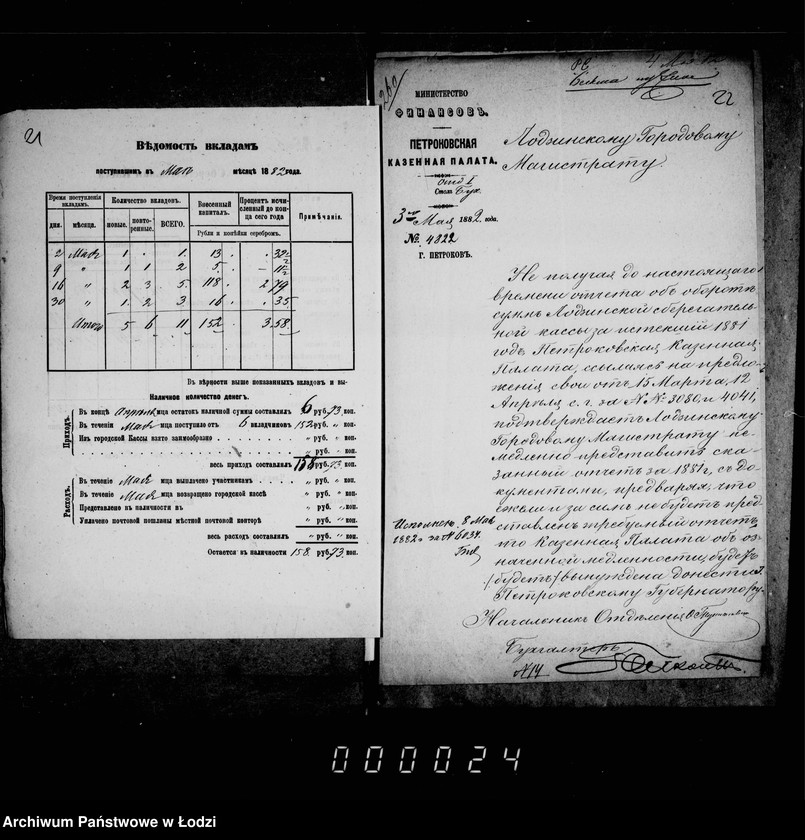 21
Вѣдомость вкладамъ
поступившимъ въ Маѣ мѣсяцѣ 1882 года.
Время поступленія вкладамъ. Количество вкладовъ. Взнесенный капиталъ. Процентъ исчисленный до конца сего года Примѣчанія.
дня. мѣсяца. новые. повторенные. ВСЕГО. Рубли и копѣйки серебромъ.
2 Маѣ 1 . 1. 13 . . 32
9 " 1 1 2 5 . – 11
16 " 2 3 5. 118 . 2 79
30 " 1 2 3 16 . . 35
Итого 5 6 11 152 . 3 58.
Въ вѣрности выше показанныхъ вкладовъ и вы-
Наличное количество денегъ.
Приходъ.
Въ концѣ Апрѣля мца остатокъ наличной суммы составлялъ 6 руб. 93 коп.
Въ теченіи Маѣ мца поступило отъ 6 вкладчиковъ 152 руб. " коп.
Изъ городской Кассы взято заимообразно " руб. " коп.
весь приходъ составлялъ 158 руб. 93 коп.
Расходъ.
Въ теченіи Маѣ мца выплачено участникамъ " руб. " коп.
Въ теченіи Маѣ мца возвращено городской кассѣ " руб. " коп.
Представлено въ наличности въ " руб. " коп.
Уплачено почтовой пошлины мѣстной почтовой конторѣ " руб. " коп.
весь расходъ составлялъ " руб. " коп.
Остается въ наличности 158 руб. 93 коп.
22
МИНИСТЕРСТВО
ФИНАНСОВЪ.
ПЕТРОКОВСКАЯ
КАЗЕННАЯ ПАЛАТА.
Отд. I
Столъ Бух.
3 го Мая 1882 года.
№ 4822
Г. ПЕТРОКОВЪ.
Лодзинскому Городовому
Магистрату.
Не получая до настоящаго
времени отчета объ оборотѣ
суммъ Лодзинской сберегатель-
ной кассы за истекшій 1881
годъ Петроковская Казенная
Палата, ссылаясь на предло-
женія свои отъ 15 Марта, 12
Апрѣля с. г. за № № 3080 и 4041,
подтверждаетъ Лодзинскому
Городовому Магистрату не-
медленно представить ска-
занный отчетъ за 1881 г. съ до-
кументами, предваряя, что
ежели и за симъ не будетъ пред-
ставленъ требуемый отчетъ,
то Казенная Палата объ оз-
наченной медленности будетъ
(будетъ) вынуждена донести Г.
Петроковскому Губернатору.
Исполнено 8 Мая
1882 г. за № 6034.
Начальникъ Отдѣленія
Бухгалтеръ
№ 14
000024
Archiwum Państwowe w Łodzi